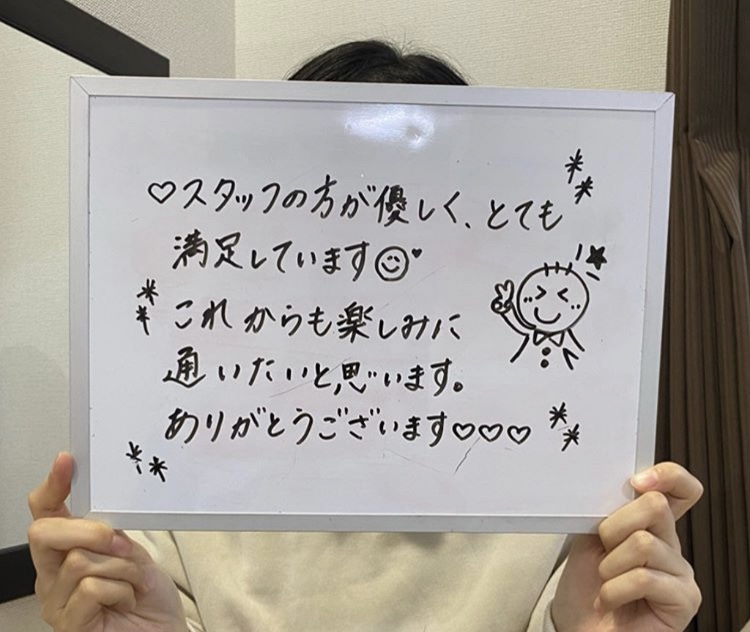 ♡スタッフの方が優しく、とても
満足しています☺♥
これからも楽しみに
通いたいと思います。
ありがとうございます♡♡♡